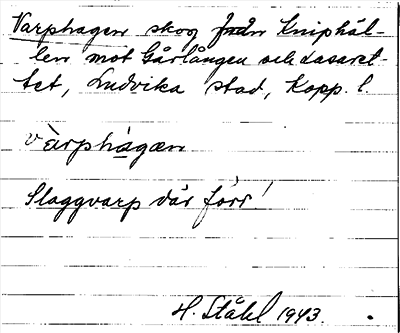 Varphagen skog från Kniphål-
len mot Gårlången och Lasaret-
tet, Ludvika stad, Kopp. l.
vàrphàgæn
Slaggvarp där förr!
H. Ståhl 1943.